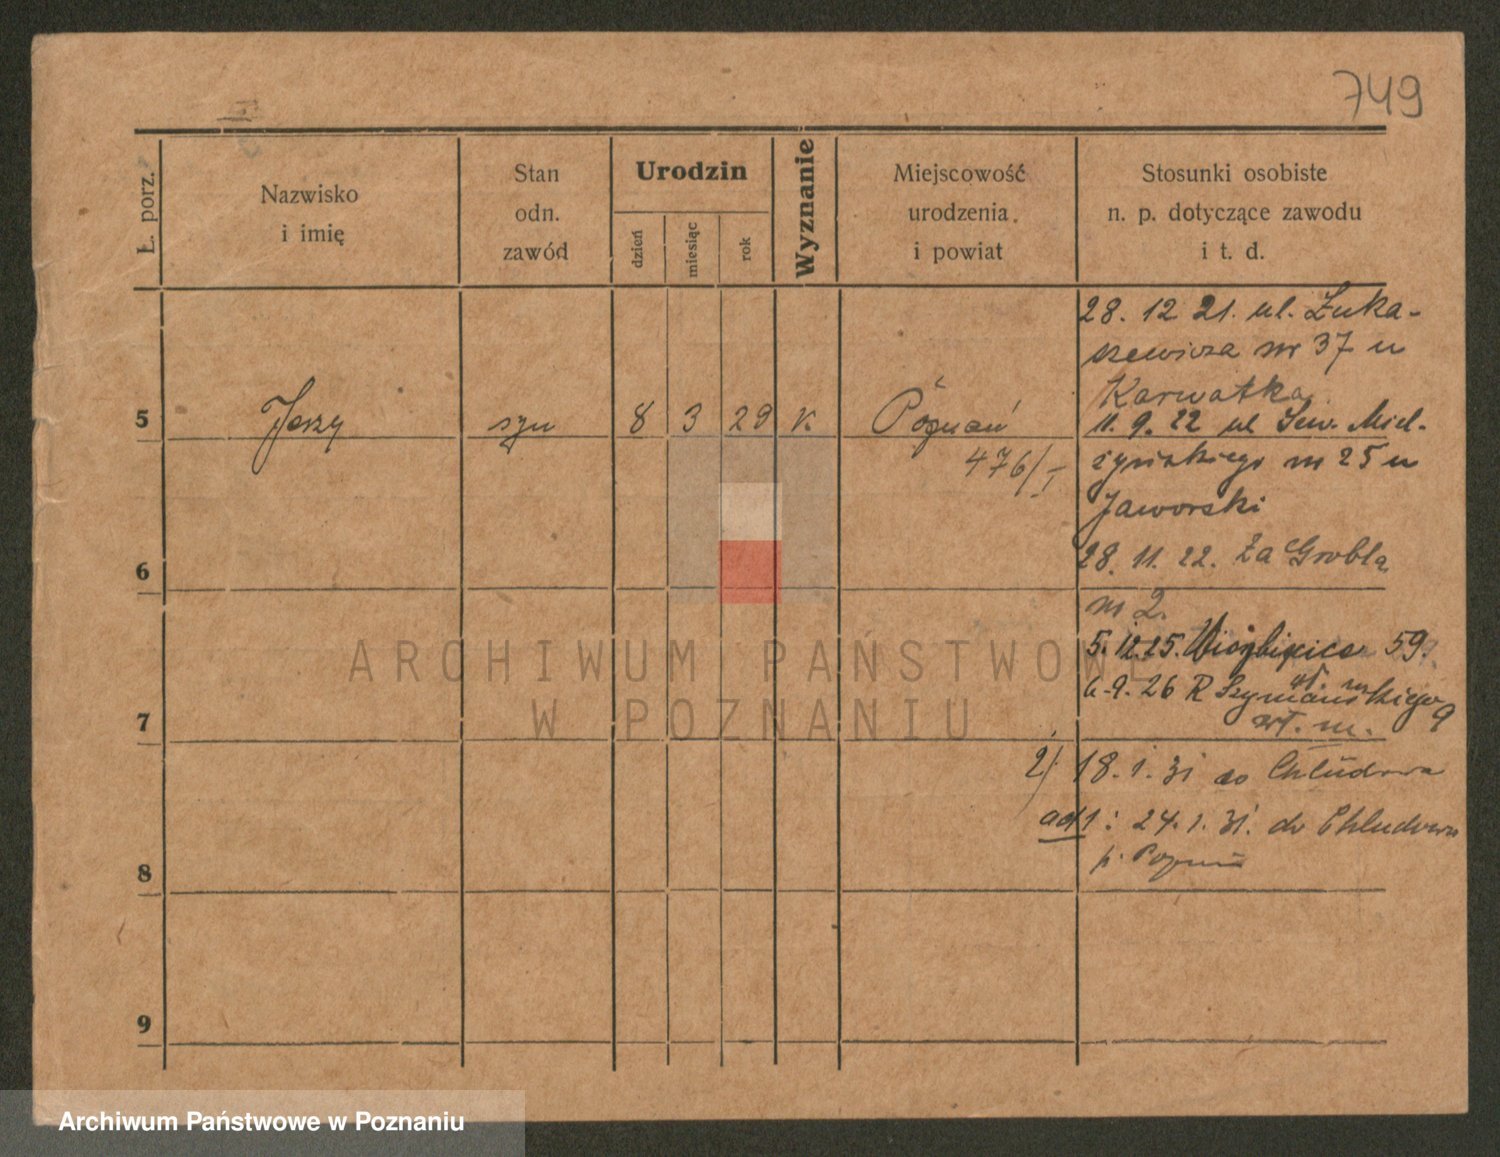 749
Ł. porz.
Nazwisko
i imię
Stan
odn.
zawód
Urodzin
dzień
miesiąc
rok
Wyznanie
Miejscowość
urodzenia
i powiat
Stosunki osobiste
n. p. dotyczące zawodu
i t. d.
28. 12 21. ul. Łuka-
szewicza nr 37 u
Karwatka
5 Jerzy syn 8 3 29 K. Poznań
476/I
11. 9. 22 ul Sew. Miel-
żyńskiego m 25 u
Jaworski
6
28. 11. 22. Za Groblą
m 2.
5. 12. 25. 59.
6. 9. 26 R Szymańskiego 9
wł. m.
wł. m.
7
2) 18. 1. 31 do Chludowa
ad 1: 24. 1. 31. do Chludowa
p. Poznań
8
9
ARCHIWUM PAŃSTWOWE
W POZNANIU
Archiwum Państwowe w Poznaniu